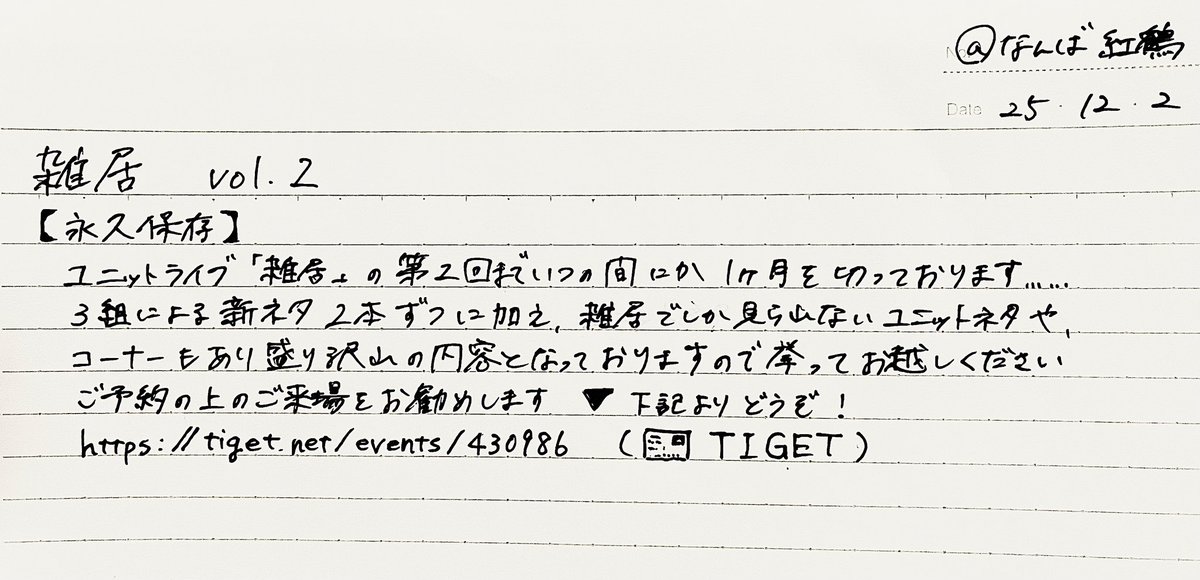 No. @なんば紅鶴
Date 25・12・2
雑居 vol.2
【永久保存】
ユニットライブ「雑居」の第2回までいつの間にか1ヶ月を切っております……
3組による新ネタ2本ずつに加え、雑居でしか見られないユニットネタや、
コーナーもあり盛り沢山の内容となっておりますので挙ってお越しください
ご予約の上のご来場をお勧めします ▼下記よりどうぞ!
https://tiget.net/events/430986 (🎫 TIGET)